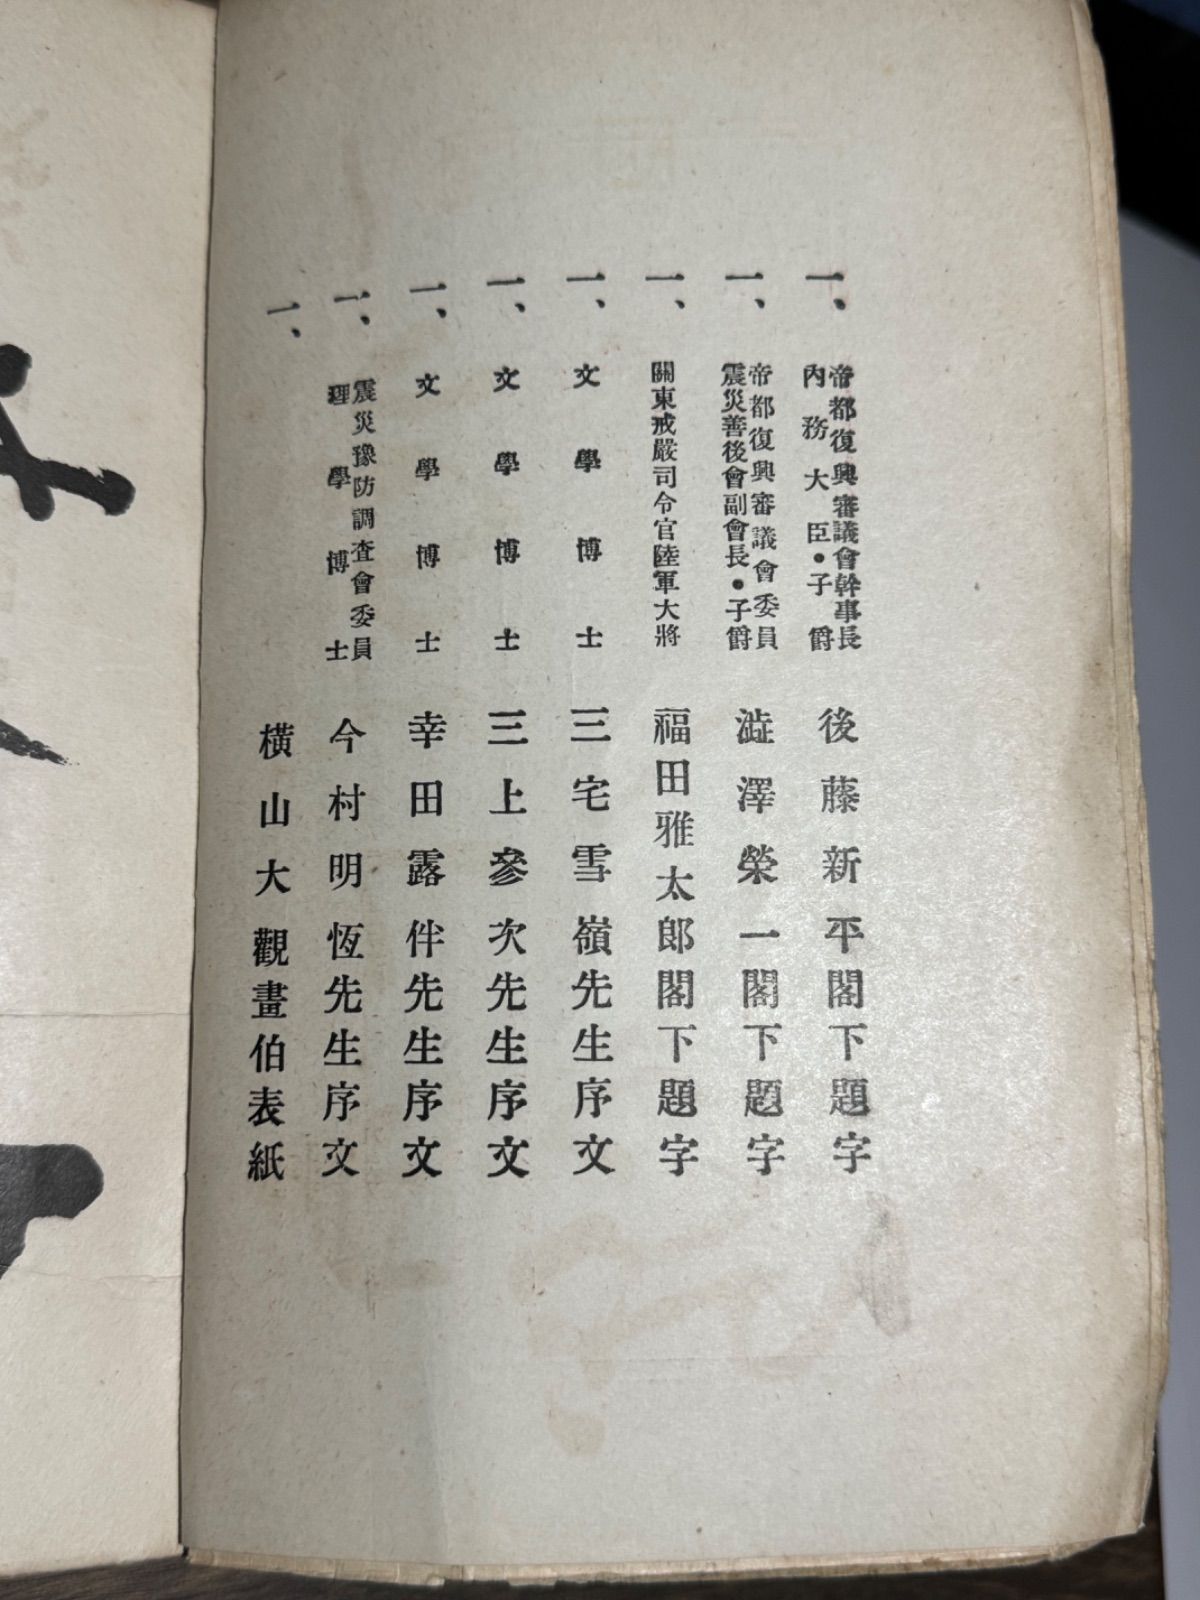 一、帝都復興審議會幹事長
内務大臣・子爵
後藤新平閣下題字
一、帝都復興審議會委員
震災善後會副會長・子爵
澁澤榮一閣下題字
一、關東戒嚴司令官陸軍大將 福田雅太郎閣下題字
一、文學博士 三宅雪嶺先生序文
一、文學博士 三上參次先生序文
一、文學博士 幸田露伴先生序文
一、震災豫防調査會委員
理學博士
今村明恆先生序文
一、橫山大觀畫伯表紙